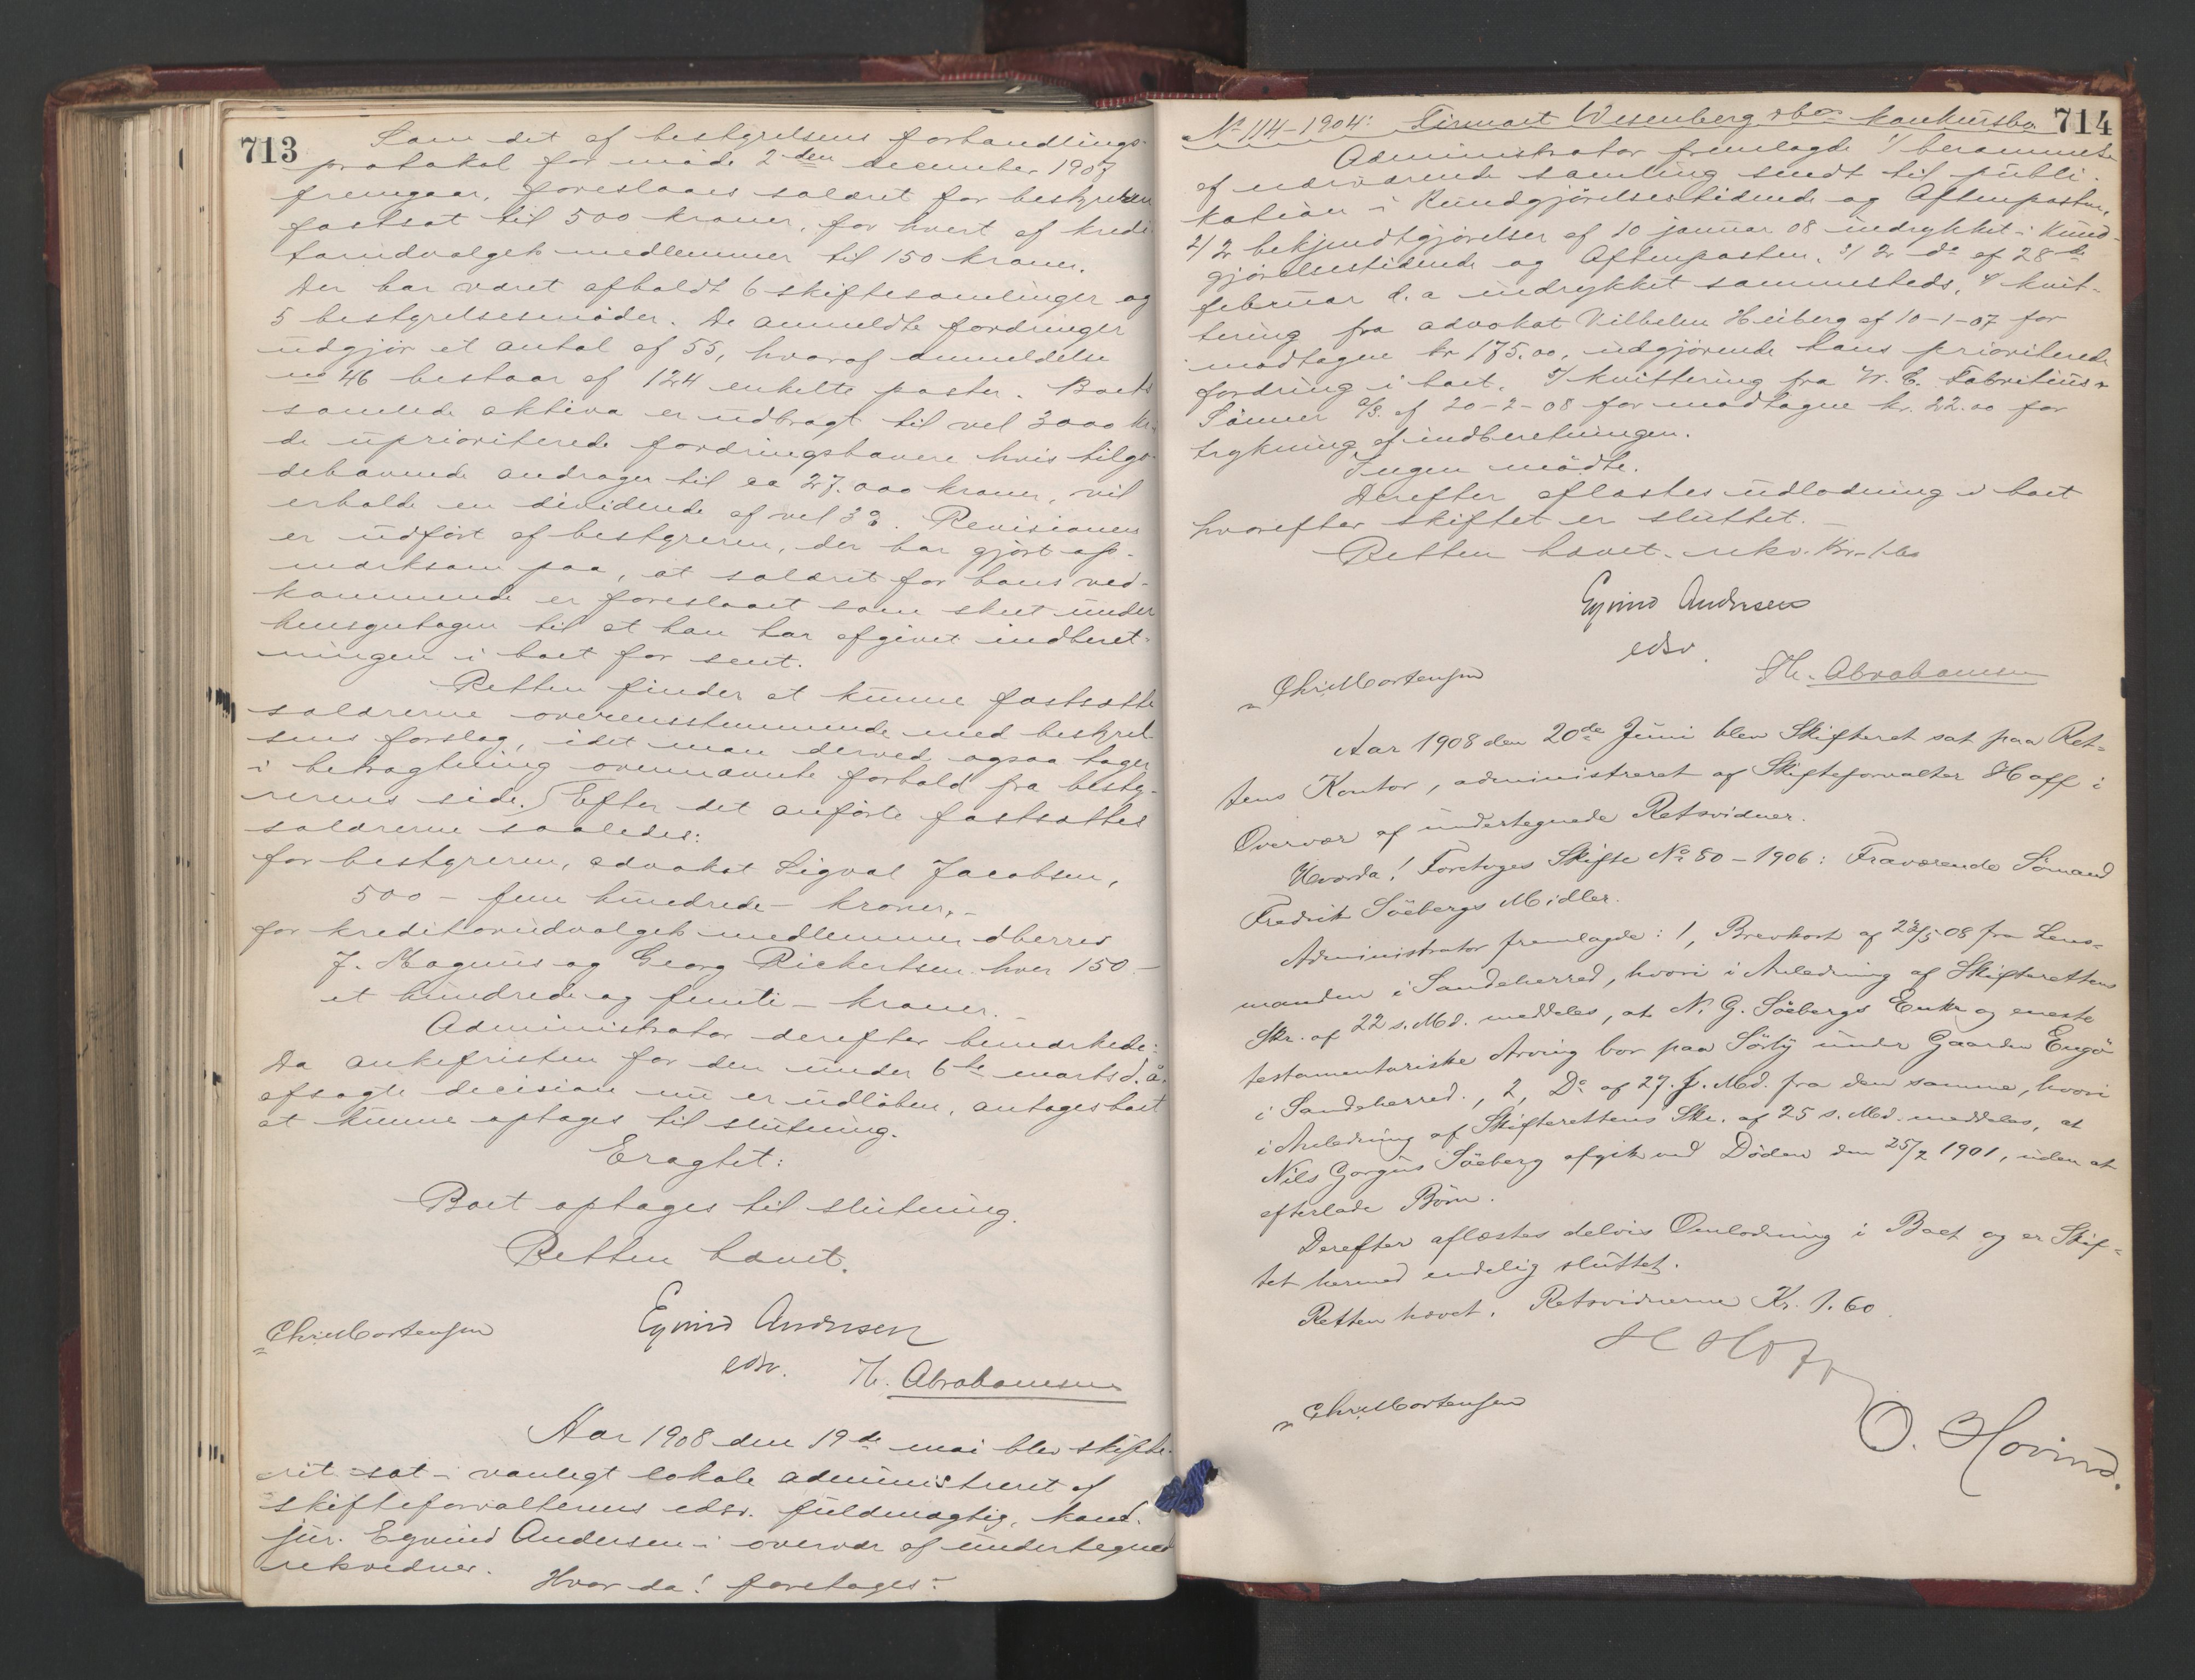 713
Som det af bestyrelsens forhandlings-
protokol for møde 2den december 1907
fremgaar, foreslaaes salæret for bestyreren
fastsat til 500 kroner, for hvert af kredi-
torudvalgets medlemmer til 150 kroner.
Der har været afholdt 6 skiftesamlinger og
5 bestyrelsesmøder. De anmeldte fordringer
udgjør et antal af 55, hvoraf anmeldelse
no 46 bestaar af 124 enkelte poster. Boets
samlede aktiva er udbragt til vel 3000 kr.
de uprioriterede fordringshavere hvis tilgo-
dehavende andrager til ca 27.000 kroner, vil
erholde en dividende af vel 3%. Revisionen
er udført af bestyreren, der har gjort op-
mærksom paa, at salæret for hans ved-
kommende er foreslaaet som skeet under
hensyntagen til at han har afgivet indberet-
ningen i boet for sent.
Retten finder at kunne fastsætte
salærerne overensstemmende med bestyrel-
sens forslag, idet man derved ogsaa tager
i betragtning ovennævnte forhold fra besty-
rerens side. Efter det anførte fastsættes
salærerne saaledes:
for bestyreren, advokat Sigval Jacobsen,
500 - fem hundrede - kroner, -
for kreditorudvalgets medlemmer dherrer
J. Magnus og Georg Richertsen hver 150 -
et hundrede og femti - kroner. -
Administrator derefter bemærkede:
Da ankefristen for den under 6te marts d. å.
afsagte decision nu er udløben, antages boet
at kunne optages til slutning.
Eragtet:
Boet optages til slutning.
Retten hævet.
Eyvind Andersen
edsv.
Chr. Mortensen
Th. Abrahamsen
Aar 1908 den 19de mai blev skifte-
ret sat i vanligt lokale administreret af
skifteforvalterens edsv. fuldmægtig, kand.
jur. Eyvind Andersen i overvær af undertegnede
retsvidner.
Hvor da! foretages:
714
No 114-1904: Firmaet Wesenberg & Co's konkursbo
Administrator fremlagde 1/ berammelse
af nærværende samling sendt til publi-
kation i Kundgjørelsestidende og Aftenposten,
2/ 2 bekjendtgjørelser af 10 januar 08 indrykket i Kund-
gjørelsestidende og Aftenposten, 3/ 2 do af 28de
februar d. a indrykket sammesteds, 4/ kvit-
tering fra advokat Vilhelm Heiberg af 10-1-07 for
modtagne kr 175.00, udgjørende hans prioriterede
fordring i boet. 5/ kvittering fra W. C. Fabritius &
Sønner A/S. af 20-2-08 for modtagne kr. 22.00 for
trykning af indberetningen.
Ingen mødte.
Derefter oplæstes udlodning i boet
hvorefter skiftet er sluttet. -
Retten hævet. rekv. kr. 1.60
Eyvind Andersen
edsv.
Chr. Mortensen
Th. Abrahamsen
Aar 1908 den 20de Juni blev Skifteret sat paa Ret-
tens Kontor, administreret af Skifteforvalter Hoff i
Overvær af undertegnede Retsvidner.
Hvorda! Foretoges Skifte No 80-1906: Fraværende Sømand
Fredrik Söebergs Midler.
Administrator fremlagde: 1, Brevkort af 23/5 08 fra Lens-
manden i Sandeherred, hvori i Anledning af Skifterettens
Skr. af 22 s. Md. meddeles, at N. G. Söebergs Enke og eneste
testamentariske Arving bor paa Sörby under Gaarden Engö
i Sandeherred., 2, Do af 27. f. Md. fra den samme, hvori
i Anledning af Skifterettens Skr. af 25 s. Md. meddeles, at
Nils Gorgus Söeberg afgik ved Døden den 25/2 1901, uden at
efterlade Børn.
Derefter oplæstes delvis Omlodning i Boet og er Skif-
tet hermed endelig sluttet.
Retten hævet. Retsvidnerne Kr. 1.60.
H Hoff
Chr. Mortensen
O. Hovind.